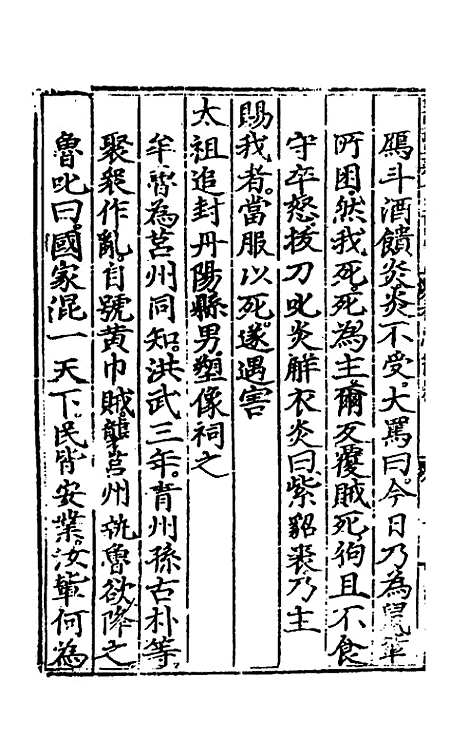 鴈斗酒饋炎炎不受大罵曰今日乃為鼠輩
所困然我死死為主爾反覆賊死狗且不食
守卒怒拔刀叱炎解衣炎曰紫貂裘乃主
賜我者當服以死遂遇害
太祖追封丹陽縣男塑像祠之
牟魯為莒州同知洪武三年青州孫古朴等
聚衆作亂自號黄巾賊襲莒州執魯欲降之
魯叱曰國家混一天下民皆安業汝輩何為